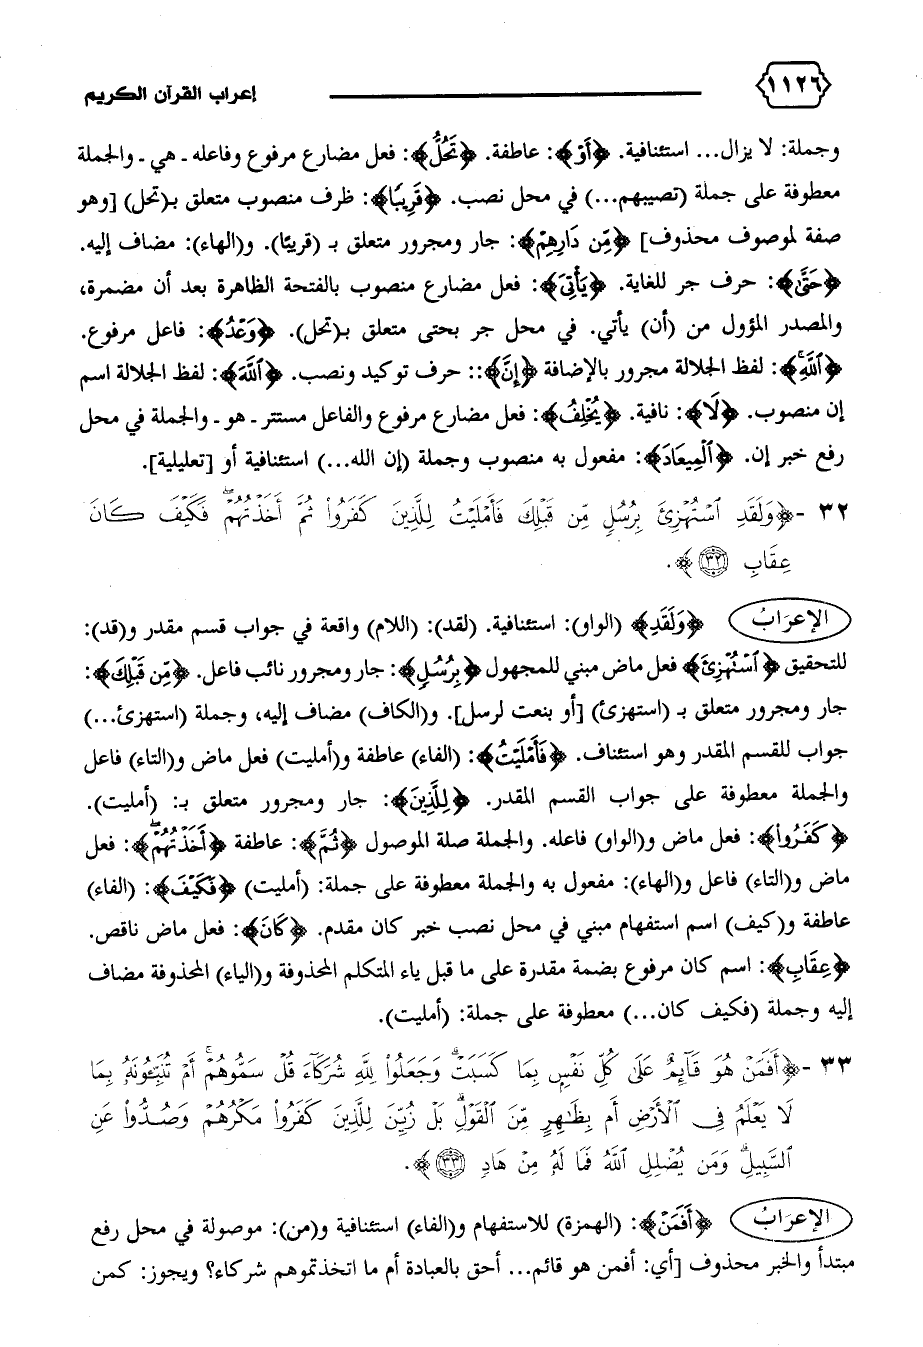 ١١٢٦ إعراب القرآن الكريم
وجملة: لا يزال... استئنافية. ﴿أَوْ﴾: عاطفة. ﴿تَحُلُّ﴾: فعل مضارع مرفوع وفاعله ـ هي ـ والجملة
معطوفة على جملة (تصيبهم...) في محل نصب. ﴿قَرِيبًا﴾: ظرف منصوب متعلق بـ(تحل) [وهو
صفة لموصوف محذوف] ﴿مِّن دَارِهِمْ﴾: جار ومجرور متعلق بـ (قريبًا). و(الهاء): مضاف إليه.
﴿حَتَّىٰ﴾: حرف جر للغاية. ﴿يَأْتِىَ﴾: فعل مضارع منصوب بالفتحة الظاهرة بعد أن مضمرة،
والمصدر المؤول من (أن) يأتي. في محل جر بحتى متعلق بـ(تحل). ﴿وَعْدُ﴾: فاعل مرفوع.
﴿ٱللَّهِۚ﴾: لفظ الجلالة مجرور بالإضافة ﴿إِنَّ﴾:: حرف توكيد ونصب. ﴿ٱللَّهَ﴾: لفظ الجلالة اسم
إن منصوب. ﴿لَا﴾: نافية. ﴿يُخْلِفُ﴾: فعل مضارع مرفوع والفاعل مستتر ـ هو ـ والجملة في محل
رفع خبر إن. ﴿ٱلْمِيعَادَ﴾: مفعول به منصوب وجملة (إن الله...) استئنافية أو [تعليلية].
٣٢ -﴿وَلَقَدِ ٱسْتُهْزِئَ بِرُسُلٍ مِّن قَبْلِكَ فَأَمْلَيْتُ لِلَّذِينَ كَفَرُوا۟ ثُمَّ أَخَذْتُهُمْۖ فَكَيْفَ كَانَ
عِقَابِ ٣٢﴾.
الإعرَابُ ﴿وَلَقَدِ﴾ (الواو): استئنافية. (لقد): (اللام) واقعة في جواب قسم مقدر و(قد):
للتحقيق ﴿ٱسْتُهْزِئَ﴾ فعل ماض مبني للمجهول ﴿بِرُسُلٍ﴾: جار ومجرور نائب فاعل. ﴿مِّن قَبْلِكَ﴾:
جار ومجرور متعلق بـ (استهزئ) [أو بنعت لرسل]. و(الكاف) مضاف إليه، وجملة (استهزئ...)
جواب للقسم المقدر وهو استئناف. ﴿فَأَمْلَيْتُ﴾: (الفاء) عاطفة و(أمليت) فعل ماض و(التاء) فاعل
والجملة معطوفة على جواب القسم المقدر. ﴿لِلَّذِينَ﴾: جار ومجرور متعلق بـ: (أمليت).
﴿كَفَرُوا۟﴾: فعل ماض و(الواو) فاعله. والجملة صلة الموصول ﴿ثُمَّ﴾: عاطفة ﴿أَخَذْتُهُمْۖ﴾: فعل
ماض و(التاء) فاعل و(الهاء): مفعول به والجملة معطوفة على جملة: (أمليت) ﴿فَكَيْفَ﴾: (الفاء)
عاطفة و(كيف) اسم استفهام مبني في محل نصب خبر كان مقدم. ﴿كَانَ﴾: فعل ماض ناقص.
﴿عِقَابِ﴾: اسم كان مرفوع بضمة مقدرة على ما قبل ياء المتكلم المحذوفة و(الياء) المحذوفة مضاف
إليه وجملة (فكيف كان...) معطوفة على جملة: (أمليت).
٣٣ -﴿أَفَمَنْ هُوَ قَآئِمٌ عَلَىٰ كُلِّ نَفْسٍ بِمَا كَسَبَتْۗ وَجَعَلُوا۟ لِلَّهِ شُرَكَآءَ قُلْ سَمُّوهُمْۚ أَمْ تُنَبِّـُٔونَهُۥ بِمَا
لَا يَعْلَمُ فِى ٱلْأَرْضِ أَم بِظَـٰهِرٍ مِّنَ ٱلْقَوْلِۗ بَلْ زُيِّنَ لِلَّذِينَ كَفَرُوا۟ مَكْرُهُمْ وَصُدُّوا۟ عَنِ
ٱلسَّبِيلِۗ وَمَن يُضْلِلِ ٱللَّهُ فَمَا لَهُۥ مِنْ هَادٍ ٣٣﴾.
الإعرَابُ ﴿أَفَمَنْ﴾: (الهمزة) للاستفهام و(الفاء) استئنافية و(من): موصولة في محل رفع
مبتدأ والخبر محذوف [أي: أفمن هو قائم... أحق بالعبادة أم ما اتخذتموهم شركاء؟ ويجوز: كمن